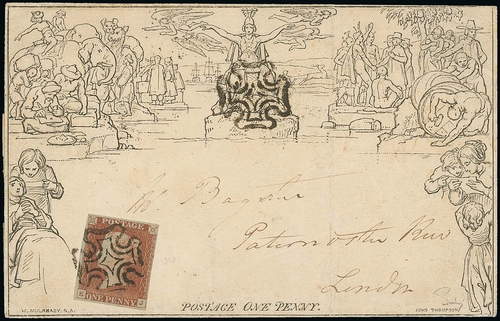 Mr. Bagster
Paternoster Row
London
POSTAGE
ONE PENNY
POSTAGE ONE PENNY.
W. MULREADY. R.A.
JOHN THOMPSON